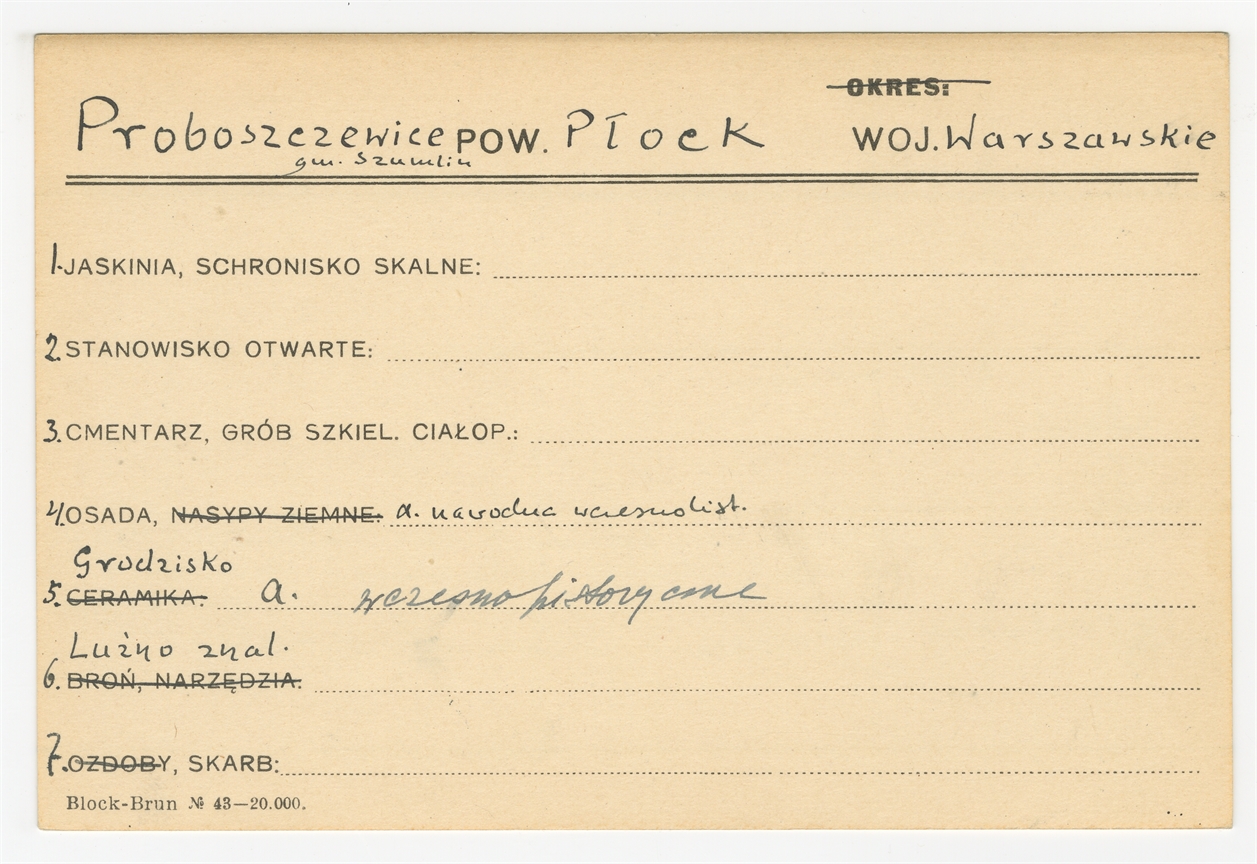 OKRES:
Proboszczewice POW. Płock WOJ. Warszawskie
gm. Szumlin
1. JASKINIA, SCHRONISKO SKALNE:
2. STANOWISKO OTWARTE:
3. CMENTARZ, GRÓB SZKIEL. CIAŁOP.:
4. OSADA, NASYPY ZIEMNE: a. nawodna wczesnohist.
Grodzisko
5. CERAMIKA: a. wczesnohistoryczne
Luźno znal.
6. BROŃ, NARZĘDZIA:
7. OZDOBY, SKARB:
Block-Brun № 43—20.000.